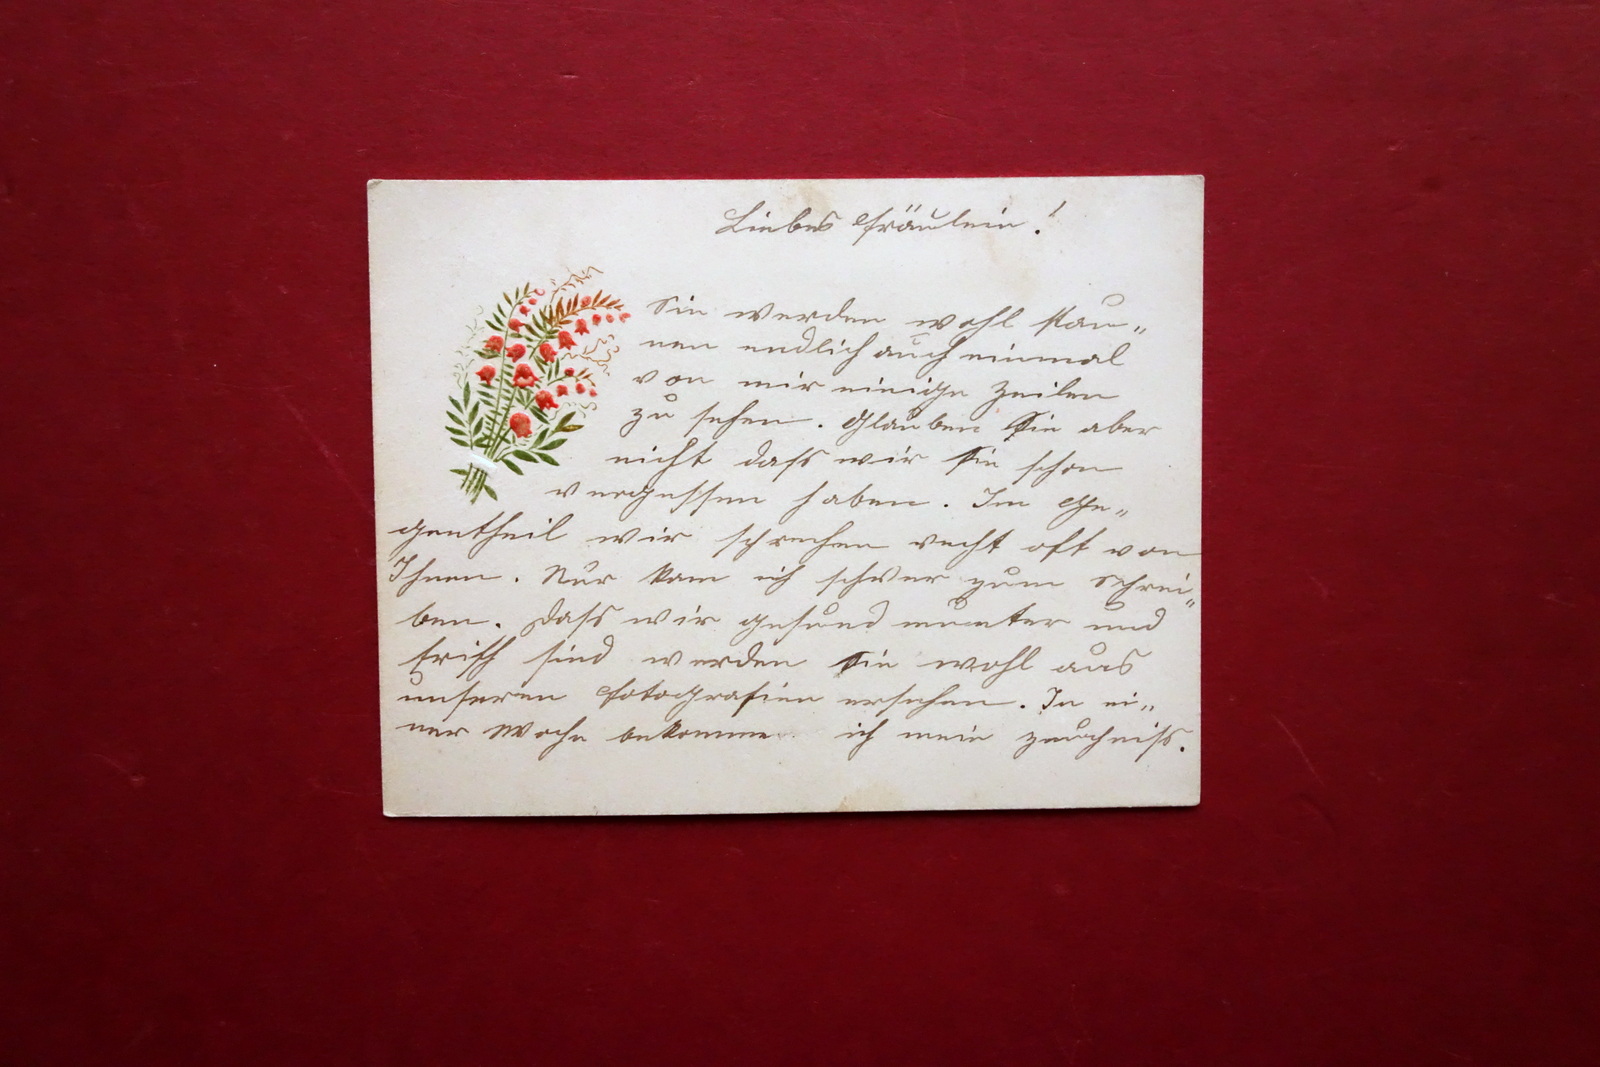 Liebes Fräulein!
Sie werden wohl stau„
nen endlich auch einmal
von mir einige Zeilen
zu sehen. Glauben Sie aber
nicht dass wir Sie schon
vergessen haben. Im Ge„
gentheil wir sprechen recht oft von
Ihnen. Nur kam ich schwer zum Schrei„
ben. Dass wir gesund munter und
frisch sind werden Sie wohl aus
unseren Fotografien ersehen. In ei„
ner Woche bekomme ich mein Zeuchniss.